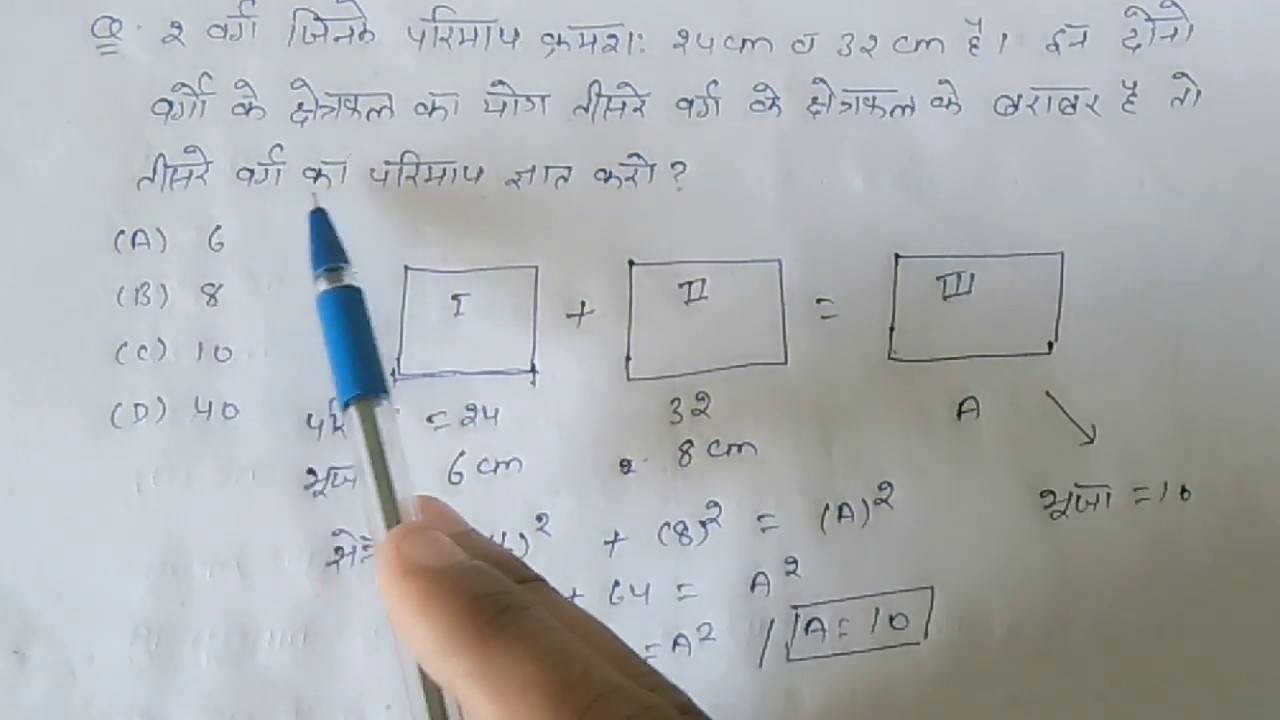 Q. 2 वर्ग जिनके परिमाप क्रमशः 24cm व 32 cm है। इन दोनो
वर्गो के क्षेत्रफल का योग तीसरे वर्ग के क्षेत्रफल के बराबर है तो
तीसरे वर्ग का परिमाप ज्ञात करो?
(A) 6
(B) 8
(C) 10
(D) 40
I + II = III
= 24 32 A
6cm 8 cm
भूजा = 10
)² + (8)² = (A)²
+ 64 = A²
= A² / A = 10